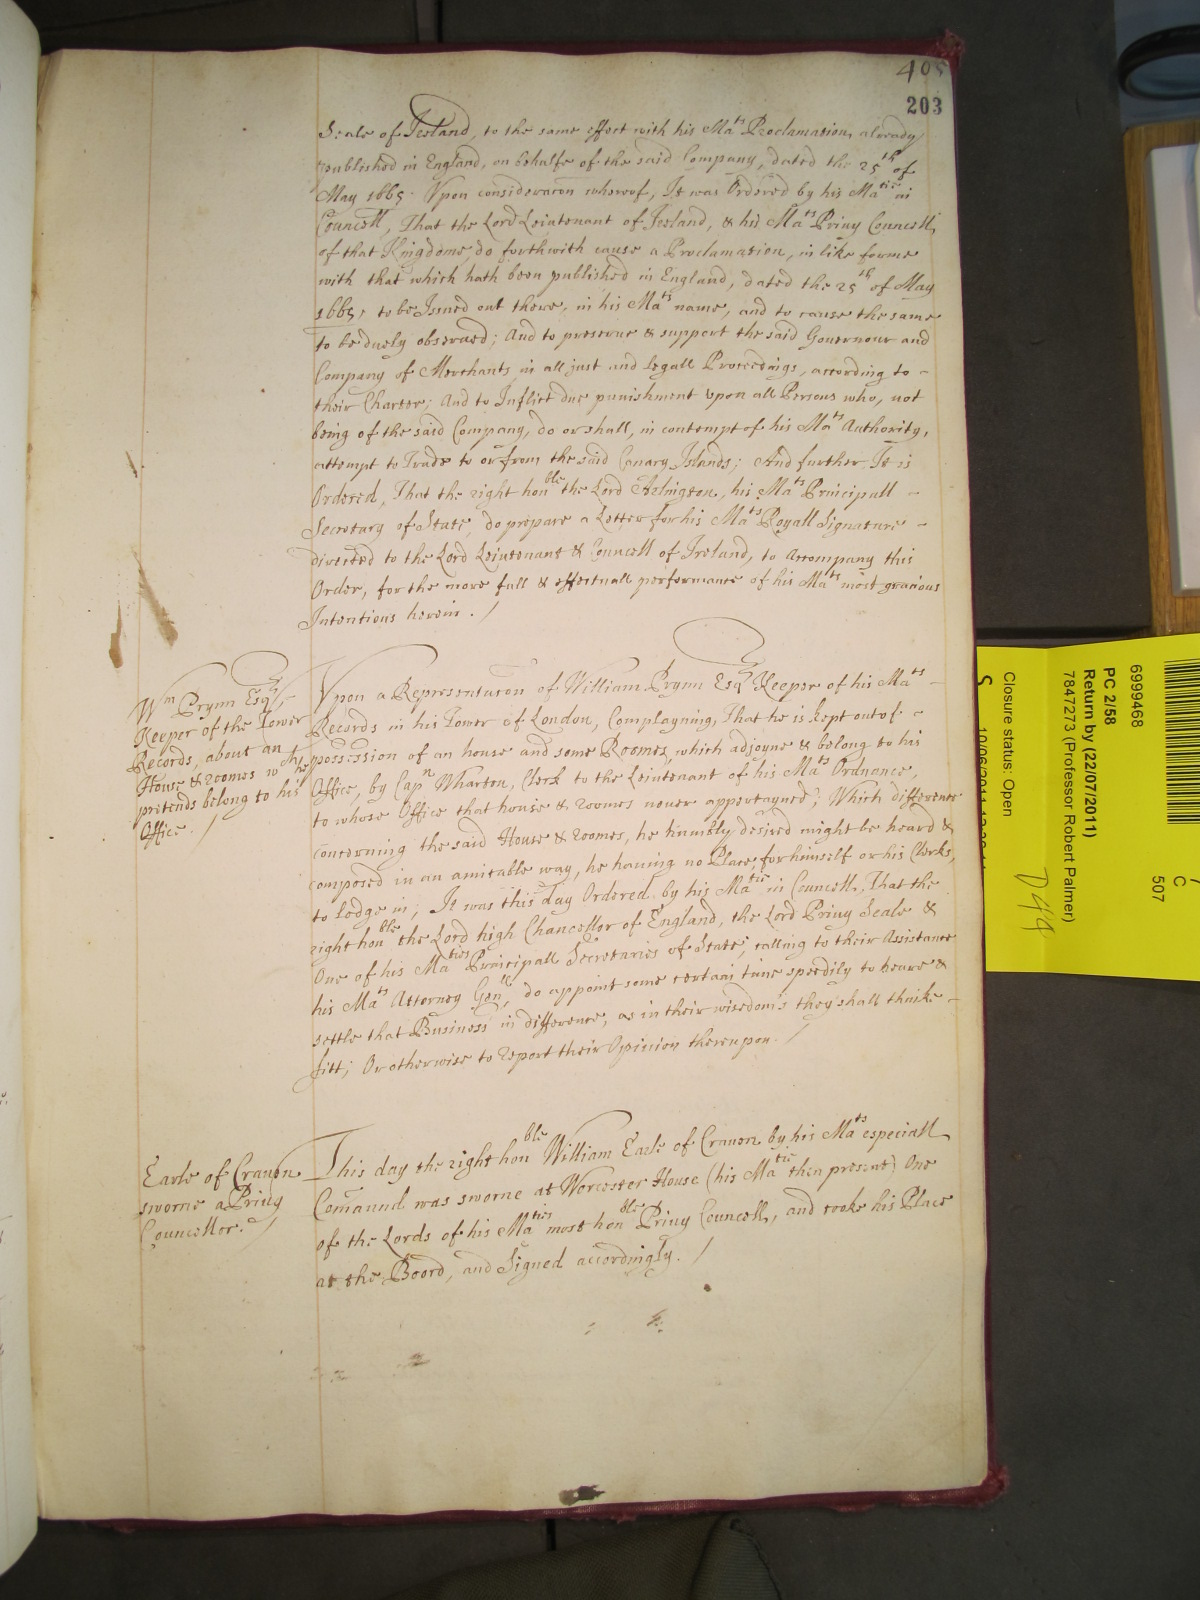 405
203
Seale of Ireland, to the same effect with his Ma^ts Proclamation, already
published in England, on behalfe of the said Company, dated the 25^th of
May 1665. Vpon consideracon whereof, It was Ordered by his Ma^tie in
Councell, That the Lord Leiutenant of Ireland, & his Ma^ts Privy Councell
of that Kingdome, do forthwith cause a Proclamation, in like forme
with that which hath been published in England, dated the 25^th of May
1665, to be Issued out there, in his Ma^ts name, and to cause the same
to be duely observed; And to preserve & support the said Governour and
Company of Merchants in all just and legall Proceedings, according to -
their Charter; And to Inflict due punishment vpon all Persons who, not
being of the said Company, do or shall, in contempt of his Ma^ts Authority,
attempt to Trade to or from the said Canary Islands; And further It is
Ordered, That the right hon^ble the Lord Arlington, his Ma^ts Principall -
Secretary of State, do prepare a Letter for his Ma^ts Royall Signature -
directed to the Lord Leiutenant & Councell of Ireland, to accompany this
Order, for the more full & effectuall performance of his Ma^ts most gracious
Intentions herein. /
W^m Prynn Esq^r,
Keeper of the Tower
Records, about an
House & roomes w^ch he
pretends belong to his
Office. /
Vpon a Representacon of William Prynn Esq^r Keeper of his Ma^ts -
Records in his Tower of London, Complayning, That he is kept out of -
possession of an house and some Roomes, which adjoyne & belong to his
Office, by Cap^n Wharton, Clerk to the Leiutenant of his Ma^ts Ordnance,
to whose Office that house & roomes never appertayned; Which difference
concerning the said House & roomes, he humbly desired might be heard &
composed in an amicable way, he having no Place for himself or his Clerks,
to lodge in; It was this day Ordered by his Ma^tie in Councell, That the
right hon^ble the Lord high Chancellor of England, the Lord Privy Seale &
One of his Ma^ties Principall Secretaries of State, calling to their Assistance
his Ma^ts Attorney Gen^ll, do appoint some certain time speedily to heare &
settle that Business in difference, as in their wisedoms they shall thinke -
fitt; Or otherwise to report their Opinion thereupon. /
Earle of Craven
sworne a Privy
Councellor. /
This day the right hon^ble William Earle of Craven by his Ma^ts especiall
Comannd was sworne at Worcester House (his Ma^tie then present) One
of the Lords of his Ma^ties most hon^ble Privy Councell, and tooke his Place
at the Boord, and Signed accordingly. /
6999468
PC 2/58
Return by (22/07/2011)
7847273 (Professor Robert Palmer)
Closure status: Open
C
507
D49
S